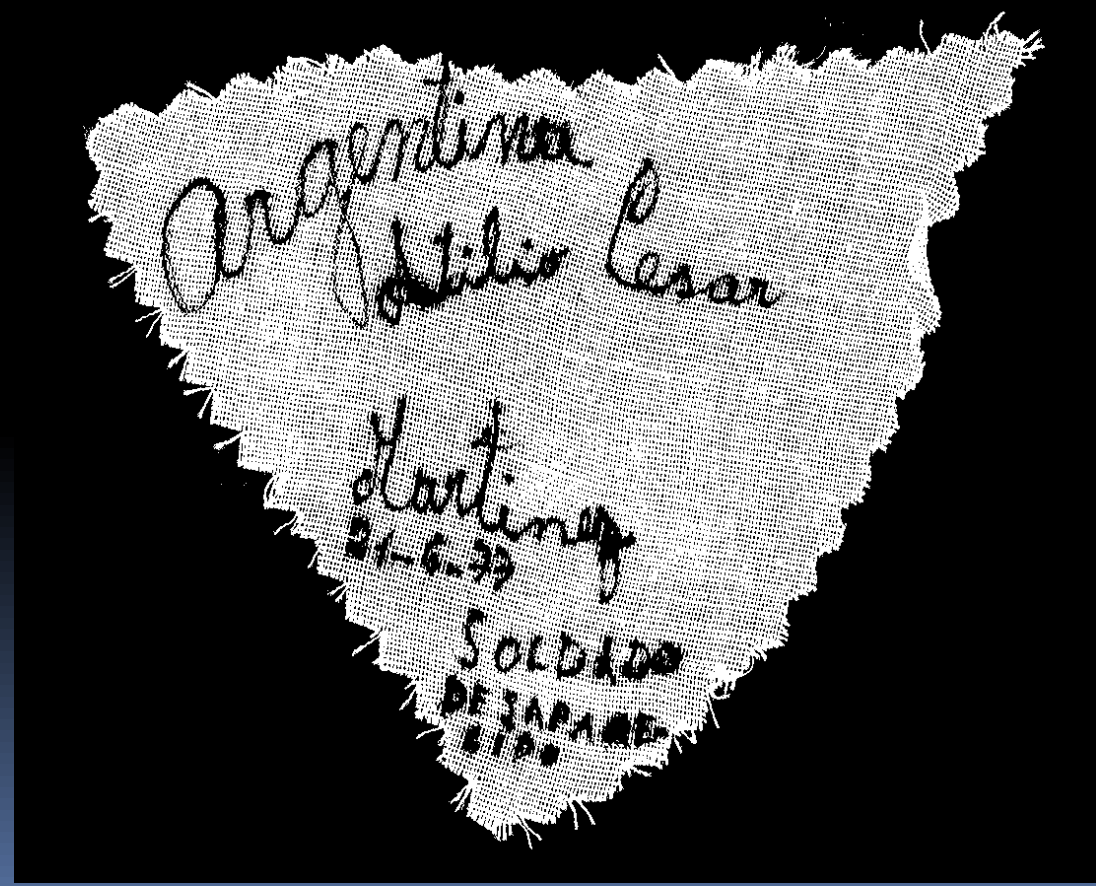 Argentina
Atilio Cesar
Martinez
21-6-77
SOLDADO
DESAPARE-
CIDO